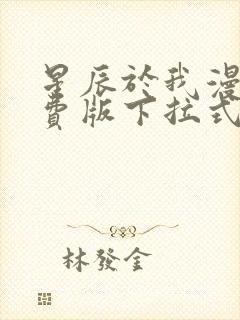 星辰於我漫
費版下拉式
林發金